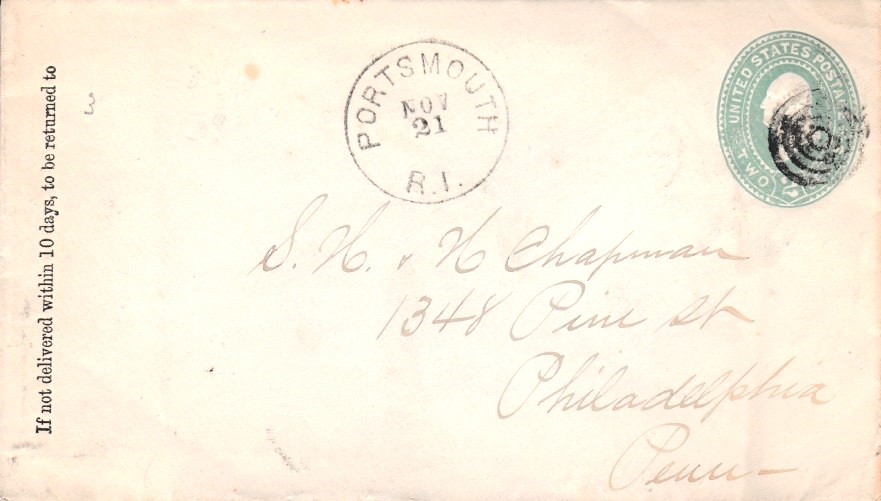 If not delivered within 10 days, to be returned to
3
PORTSMOUTH
NOV
21
R.I.
UNITED STATES POSTA
TWO
2
S. H. & H Chapman
1348 Pine St
Philadelphia
Penn